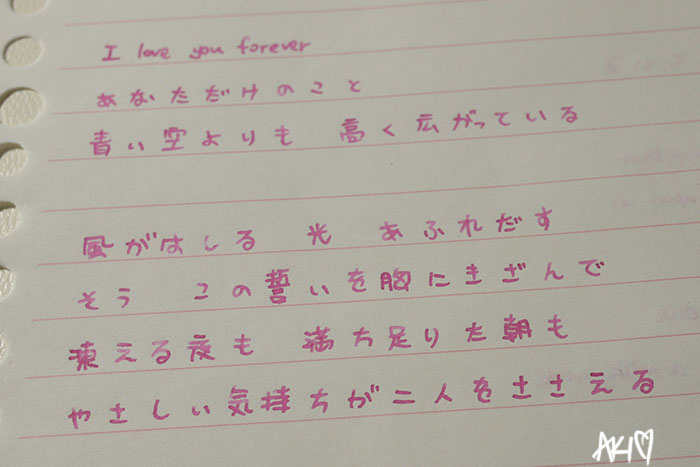 I love you forever
あなただけのこと
青い空よりも 高く広がっている
風がはしる 光 あふれだす
そう この誓いを胸にきざんで
凍える夜も 満ち足りた朝も
やさしい気持ちが二人をささえる
AKI♡